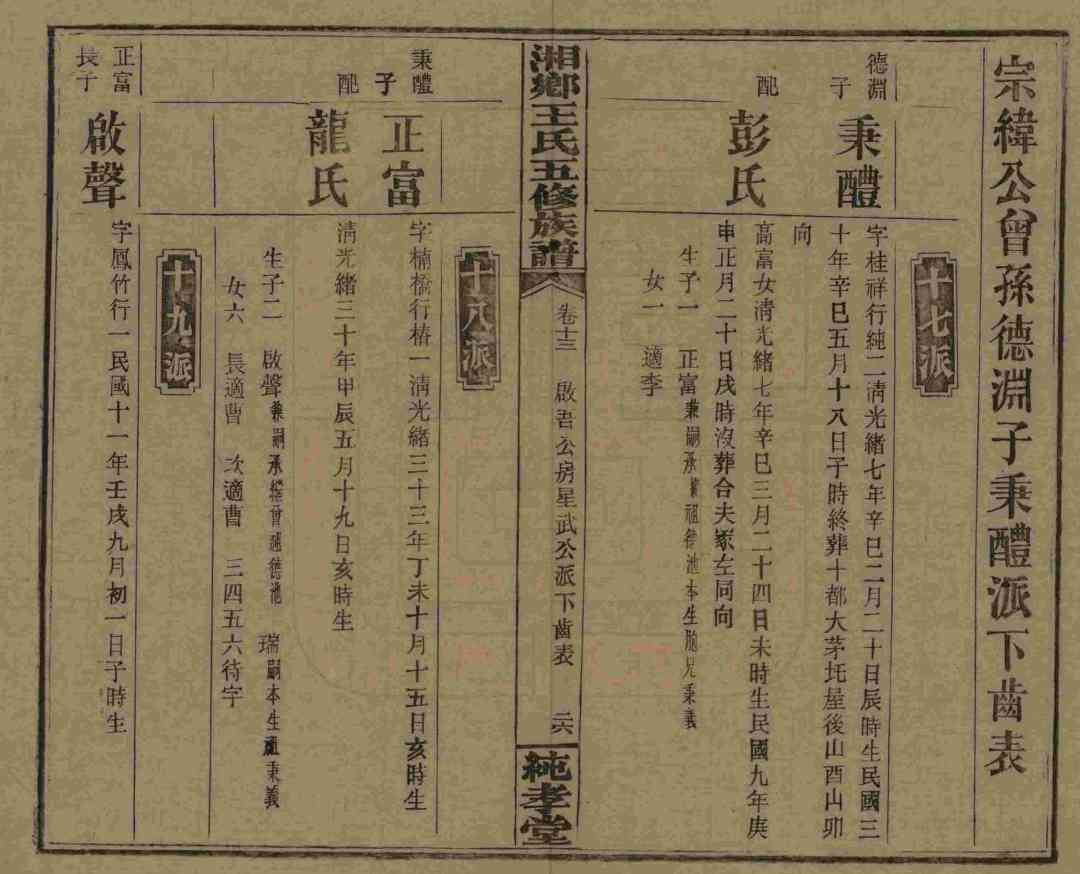 宗緯公曾孫德淵子秉醴派下齒表
十七派
德淵子
秉醴
字桂祥行純二清光緒七年辛巳二月二十日辰時生民國三
十年辛巳五月十八日子時終葬十都大茅圫屋後山酉山卯
向
配
彭氏
高富女清光緒七年辛巳三月二十四日未時生民國九年庚
申正月二十日戌時沒葬合夫冢左同向
生子一 正富兼嗣承繼祖德池本生胞兄秉義
女一 適李
湘鄉王氏五修族譜
卷十三 啟吾公房星武公派下齒表 二六
純孝堂
十八派
秉醴子
正富
字楠橋行椿一清光緒三十三年丁未十月十五日亥時生
配
龍氏
清光緒三十年甲辰五月十九日亥時生
生子二 啟聲兼嗣承繼曾祖德池 瑞嗣本生祖秉義
女六 長適曹 次適曹 三四五六待字
十九派
正富長子
啟聲
字鳳竹行一民國十一年壬戌九月初一日子時生